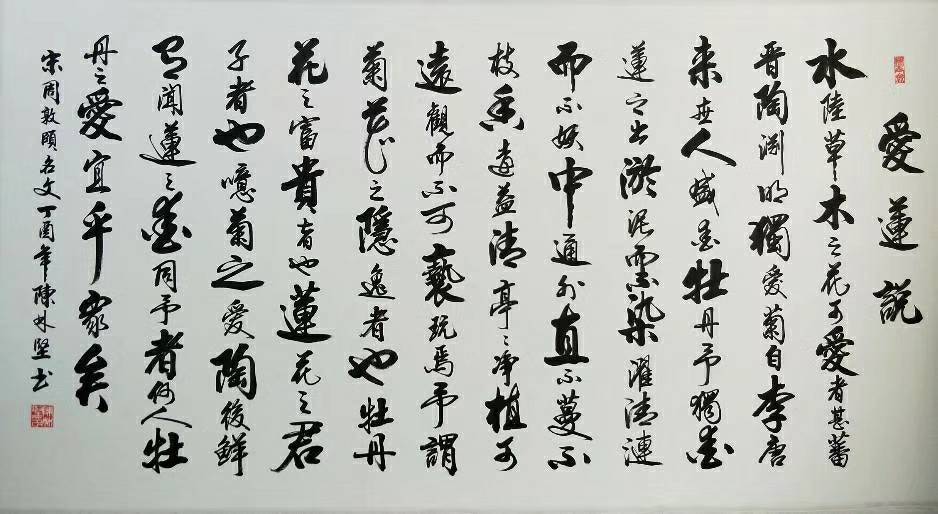 愛蓮說
水陸草木之花可愛者甚蕃
晉陶渊明獨愛菊自李唐
来世人盛愛牡丹予獨愛
蓮之出淤泥而不染濯清漣
而不妖中通外直不蔓不
枝香遠益清亭〻净植可
遠觀而不可褻玩焉予謂
菊花之隱逸者也牡丹
花之富貴者也蓮花之君
子者也噫菊之愛陶後鮮
有聞蓮之愛同予者何人牡
丹之愛宜乎眾矣
宋周敦頤名文丁酉年陳林堅书